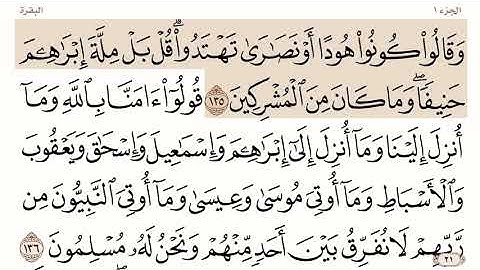 الجزء ١ البقرة
وَقَالُوا۟ كُونُوا۟ هُودًا أَوْ نَصَـٰرَىٰ تَهْتَدُوا۟ ۗ قُلْ بَلْ مِلَّةَ إِبْرَٰهِـۧمَ
حَنِيفًا ۖ وَمَا كَانَ مِنَ ٱلْمُشْرِكِينَ ١٣٥ قُولُوٓا۟ ءَامَنَّا بِٱللَّهِ وَمَآ
أُنزِلَ إِلَيْنَا وَمَآ أُنزِلَ إِلَىٰٓ إِبْرَٰهِـۧمَ وَإِسْمَـٰعِيلَ وَإِسْحَـٰقَ وَيَعْقُوبَ
وَٱلْأَسْبَاطِ وَمَآ أُوتِىَ مُوسَىٰ وَعِيسَىٰ وَمَآ أُوتِىَ ٱلنَّبِيُّونَ مِن
رَّبِّهِمْ لَا نُفَرِّقُ بَيْنَ أَحَدٍ مِّنْهُمْ وَنَحْنُ لَهُۥ مُسْلِمُونَ ١٣٦
٢١